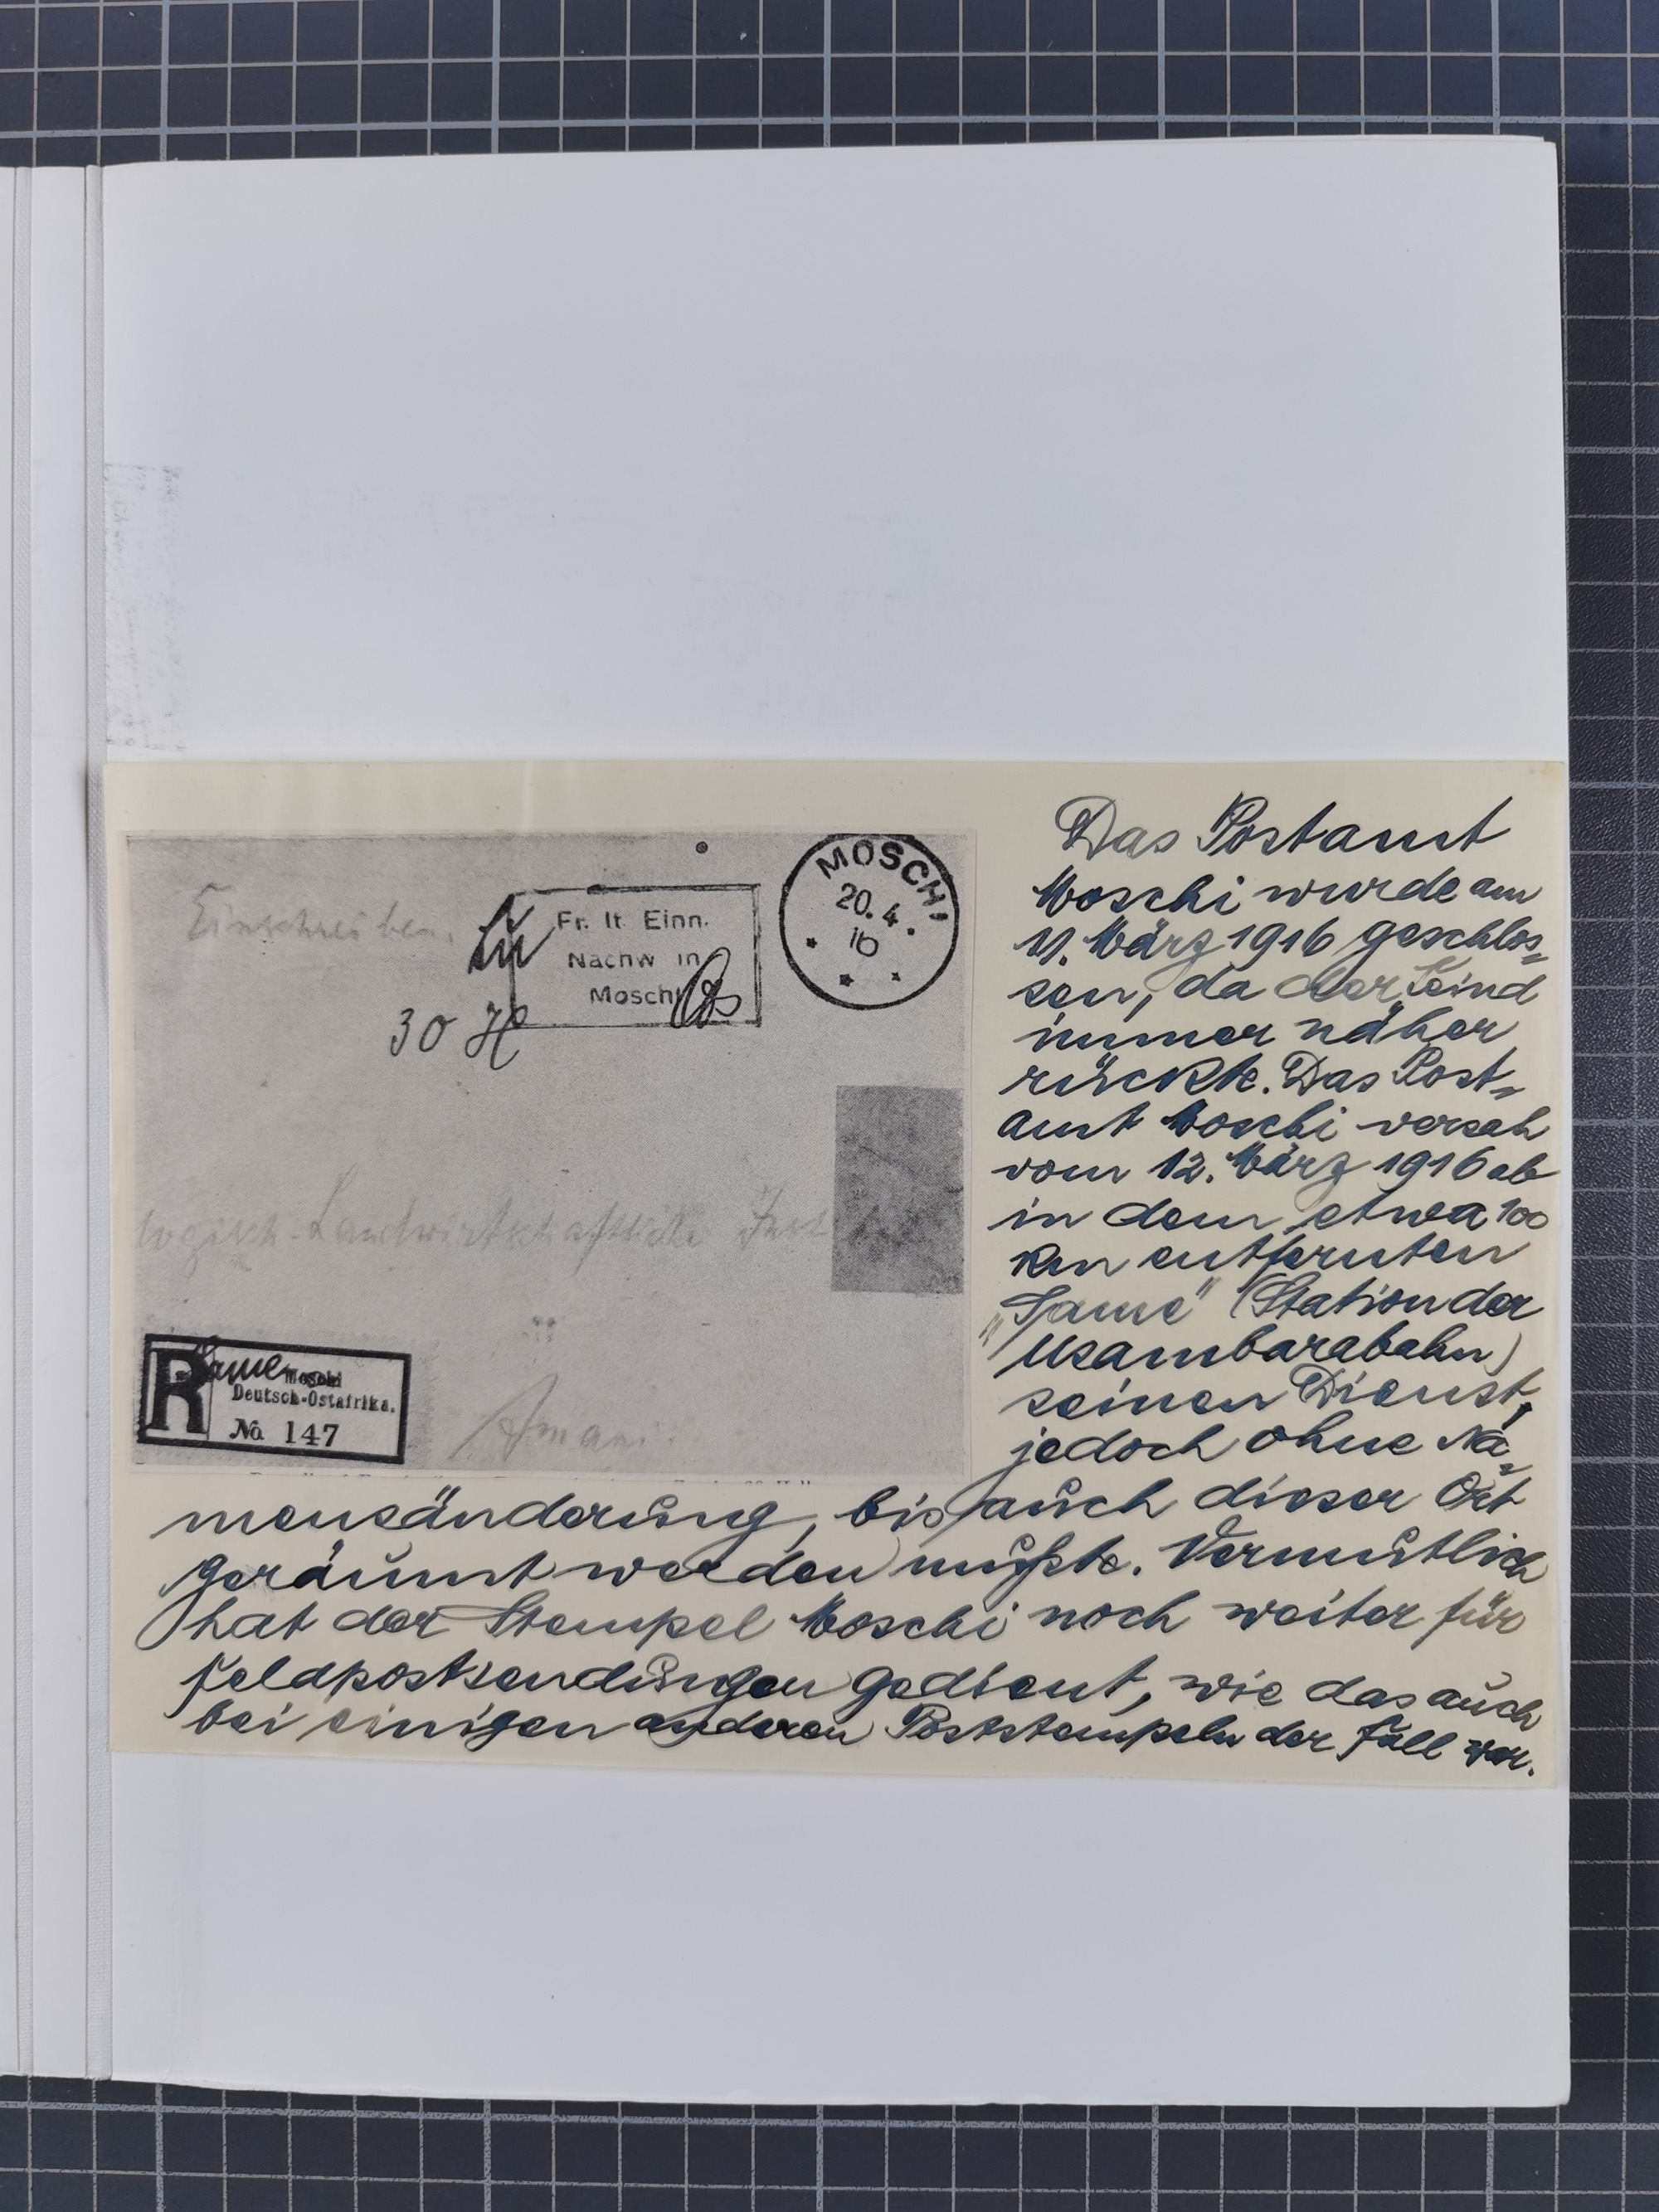 Einschreiben.
Fr. lt. Einn.
Nachw in
Moschi
MOSCHI
20. 4.
16
30 H
logisch-Landwirtschaftliche Inst
Same Moschi
R Deutsch-Ostafrika.
No 147
Amani.
Das Postamt
Moschi wurde am
11. März 1916 geschlos=
sen, da der Feind
immer näher
rückte. Das Post=
amt Moschi versah
vom 12. März 1916 ab
in dem etwa 100
km entfernten
"Same" (Station der
Usambarabahn)
seinen Dienst,
jedoch ohne Na=
mensänderung, bis auch dieser Ort
geräumt werden mußte. Vermutlich
hat der Stempel Moschi noch weiter für
Feldpostsendungen gedient, wie das auch
bei einigen anderen Poststempeln der Fall war.